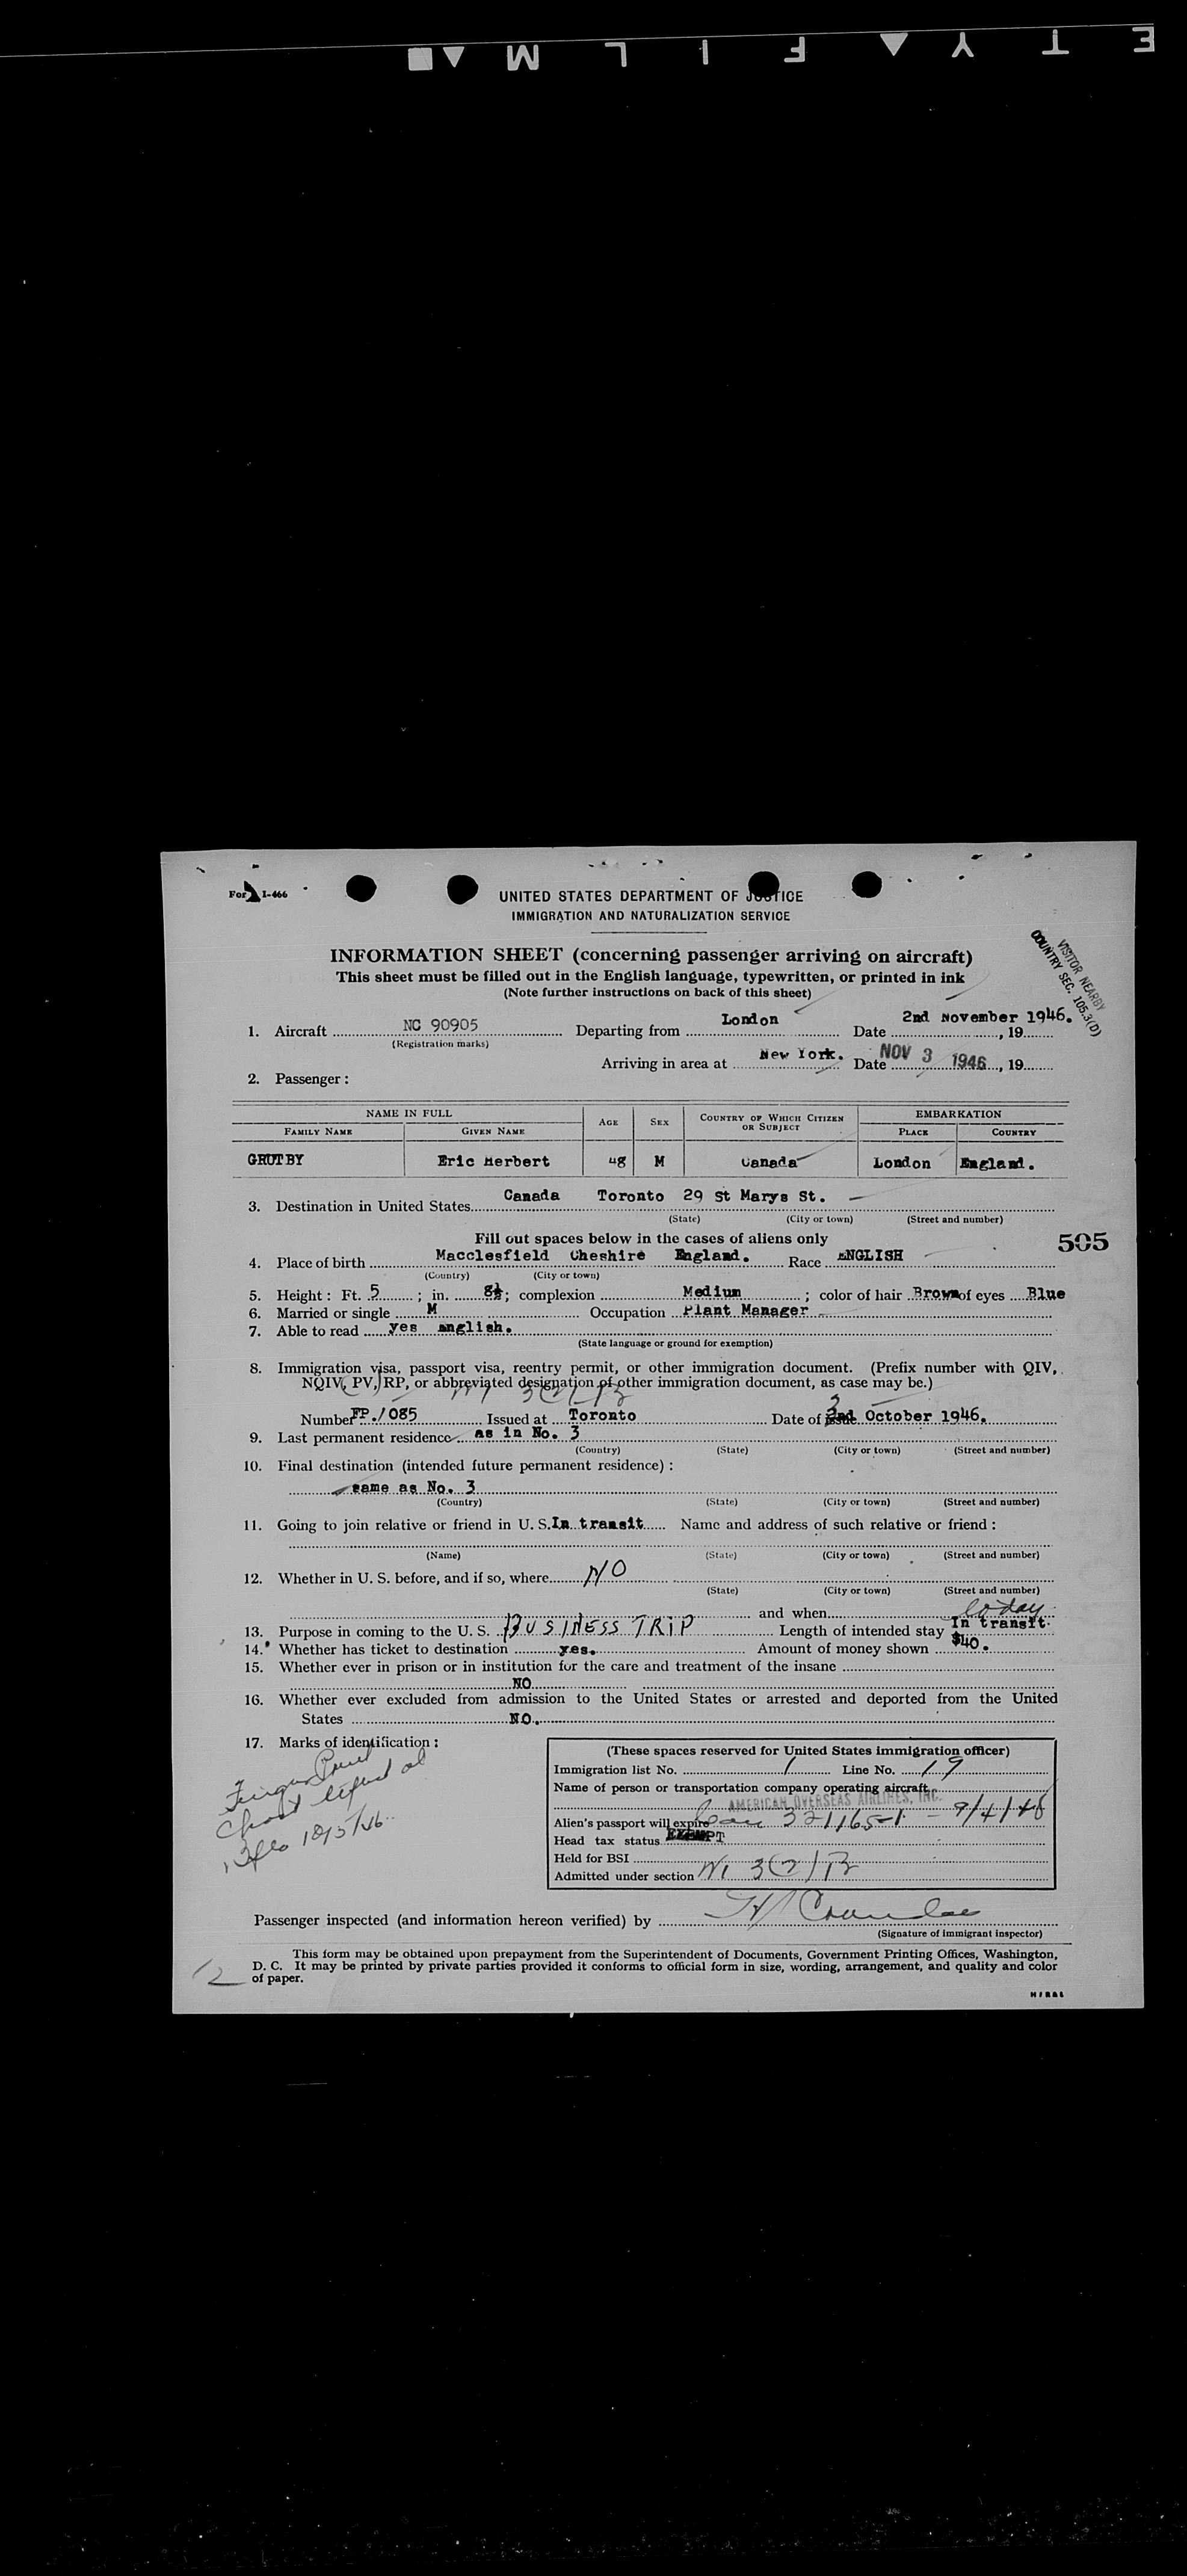 E T Y ▲ F I L M ▲ ■
Form I-466
UNITED STATES DEPARTMENT OF JUSTICE
IMMIGRATION AND NATURALIZATION SERVICE
INFORMATION SHEET (concerning passenger arriving on aircraft)
This sheet must be filled out in the English language, typewritten, or printed in ink
(Note further instructions on back of this sheet)
VISITOR NEARBY
COUNTRY SEC. 105.3(D)
1. Aircraft NC 90905 Departing from London Date 2nd November 1946. , 19
(Registration marks)
Arriving in area at New York. Date NOV 3 1946 , 19
2. Passenger :
NAME IN FULL AGE SEX COUNTRY OF WHICH CITIZEN OR SUBJECT EMBARKATION
FAMILY NAME GIVEN NAME PLACE COUNTRY
GRUTBY Eric Herbert 48 M Canada London England.
3. Destination in United States Canada Toronto 29 St Marys St.
(State) (City or town) (Street and number)
Fill out spaces below in the cases of aliens only
505
4. Place of birth Macclesfield Cheshire England. Race ENGLISH
(Country) (City or town)
5. Height : Ft. 5 ; in. 8½ ; complexion Medium ; color of hair Brown of eyes Blue
6. Married or single M Occupation Plant Manager
7. Able to read yes English.
(State language or ground for exemption)
8. Immigration visa, passport visa, reentry permit, or other immigration document. (Prefix number with QIV,
NQIV, PV, RP, or abbreviated designation of other immigration document, as case may be.)
3(2)/B
Number FP./085 Issued at Toronto Date of issue 2nd October 1946.
9. Last permanent residence as in No. 3
(Country) (State) (City or town) (Street and number)
10. Final destination (intended future permanent residence) :
same as No. 3
(Country) (State) (City or town) (Street and number)
11. Going to join relative or friend in U. S. In transit Name and address of such relative or friend :
(Name) (State) (City or town) (Street and number)
12. Whether in U. S. before, and if so, where NO
(State) (City or town) (Street and number)
and when
today
13. Purpose in coming to the U. S. BUSINESS TRIP Length of intended stay In transit.
14. Whether has ticket to destination yes. Amount of money shown $40.
15. Whether ever in prison or in institution for the care and treatment of the insane
NO
16. Whether ever excluded from admission to the United States or arrested and deported from the United
States NO.
17. Marks of identification :
Finger Print
Chart
(These spaces reserved for United States immigration officer)
Immigration list No. 1 Line No. 19
Name of person or transportation company operating aircraft
AMERICAN OVERSEAS AIRLINES, INC.
Alien's passport will expire Can 321165-1 - 9/4/48
Head tax status EXEMPT
Held for BSI
Admitted under section 3(2)/B
Passenger inspected (and information hereon verified) by
(Signature of immigrant inspector)
This form may be obtained upon prepayment from the Superintendent of Documents, Government Printing Offices, Washington,
D. C. It may be printed by private parties provided it conforms to official form in size, wording, arrangement, and quality and color
of paper.
12